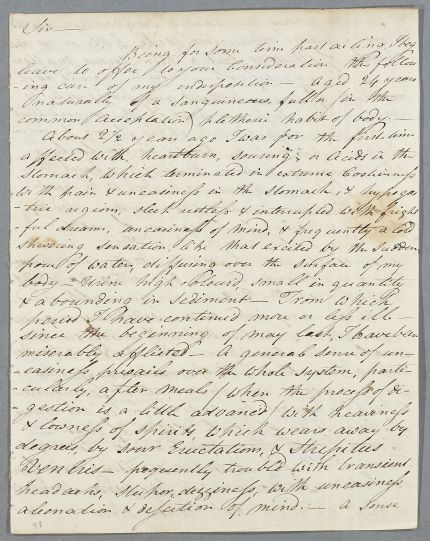 Sir —
Being for some time past ailing, I beg
leave to offer to your Consideration the follow
ing case of my indisposition — aged 24 years
naturally of a sanguineous, full (in the
common acceptation) plethoric habit of body. —
About 2½ years ago I was for the first time
affected with heartburn, souring, or Acids in the
Stomach, which terminated in extreme Costiveness
with pain & uneasiness in the stomach, & hypogas-
tric region, sleep restless & interrupted with fright
ful dreams, uneasiness of mind, & frequently a cold
shivering sensation like that excited by the sudden
pour of water, diffusing over the surface of my
body — Urine high colour'd, small in quantity
& abounding in sediment — From which
period I have continued more or less ill —
since the beginning of may last, I have been
miserably afflicted — A general sense of un-
easiness prevails over the whole system, parti-
cularly, after meals (when the process of di-
gestion is a little advanced) with heaviness
& lowness of spirits, which wears away by
degrees, by sour Eructations, & Strepitus
Ventris — frequently troubled with transient
headachs, stupor, dizziness, with uneasiness
alienation & dejection of mind. — a sense